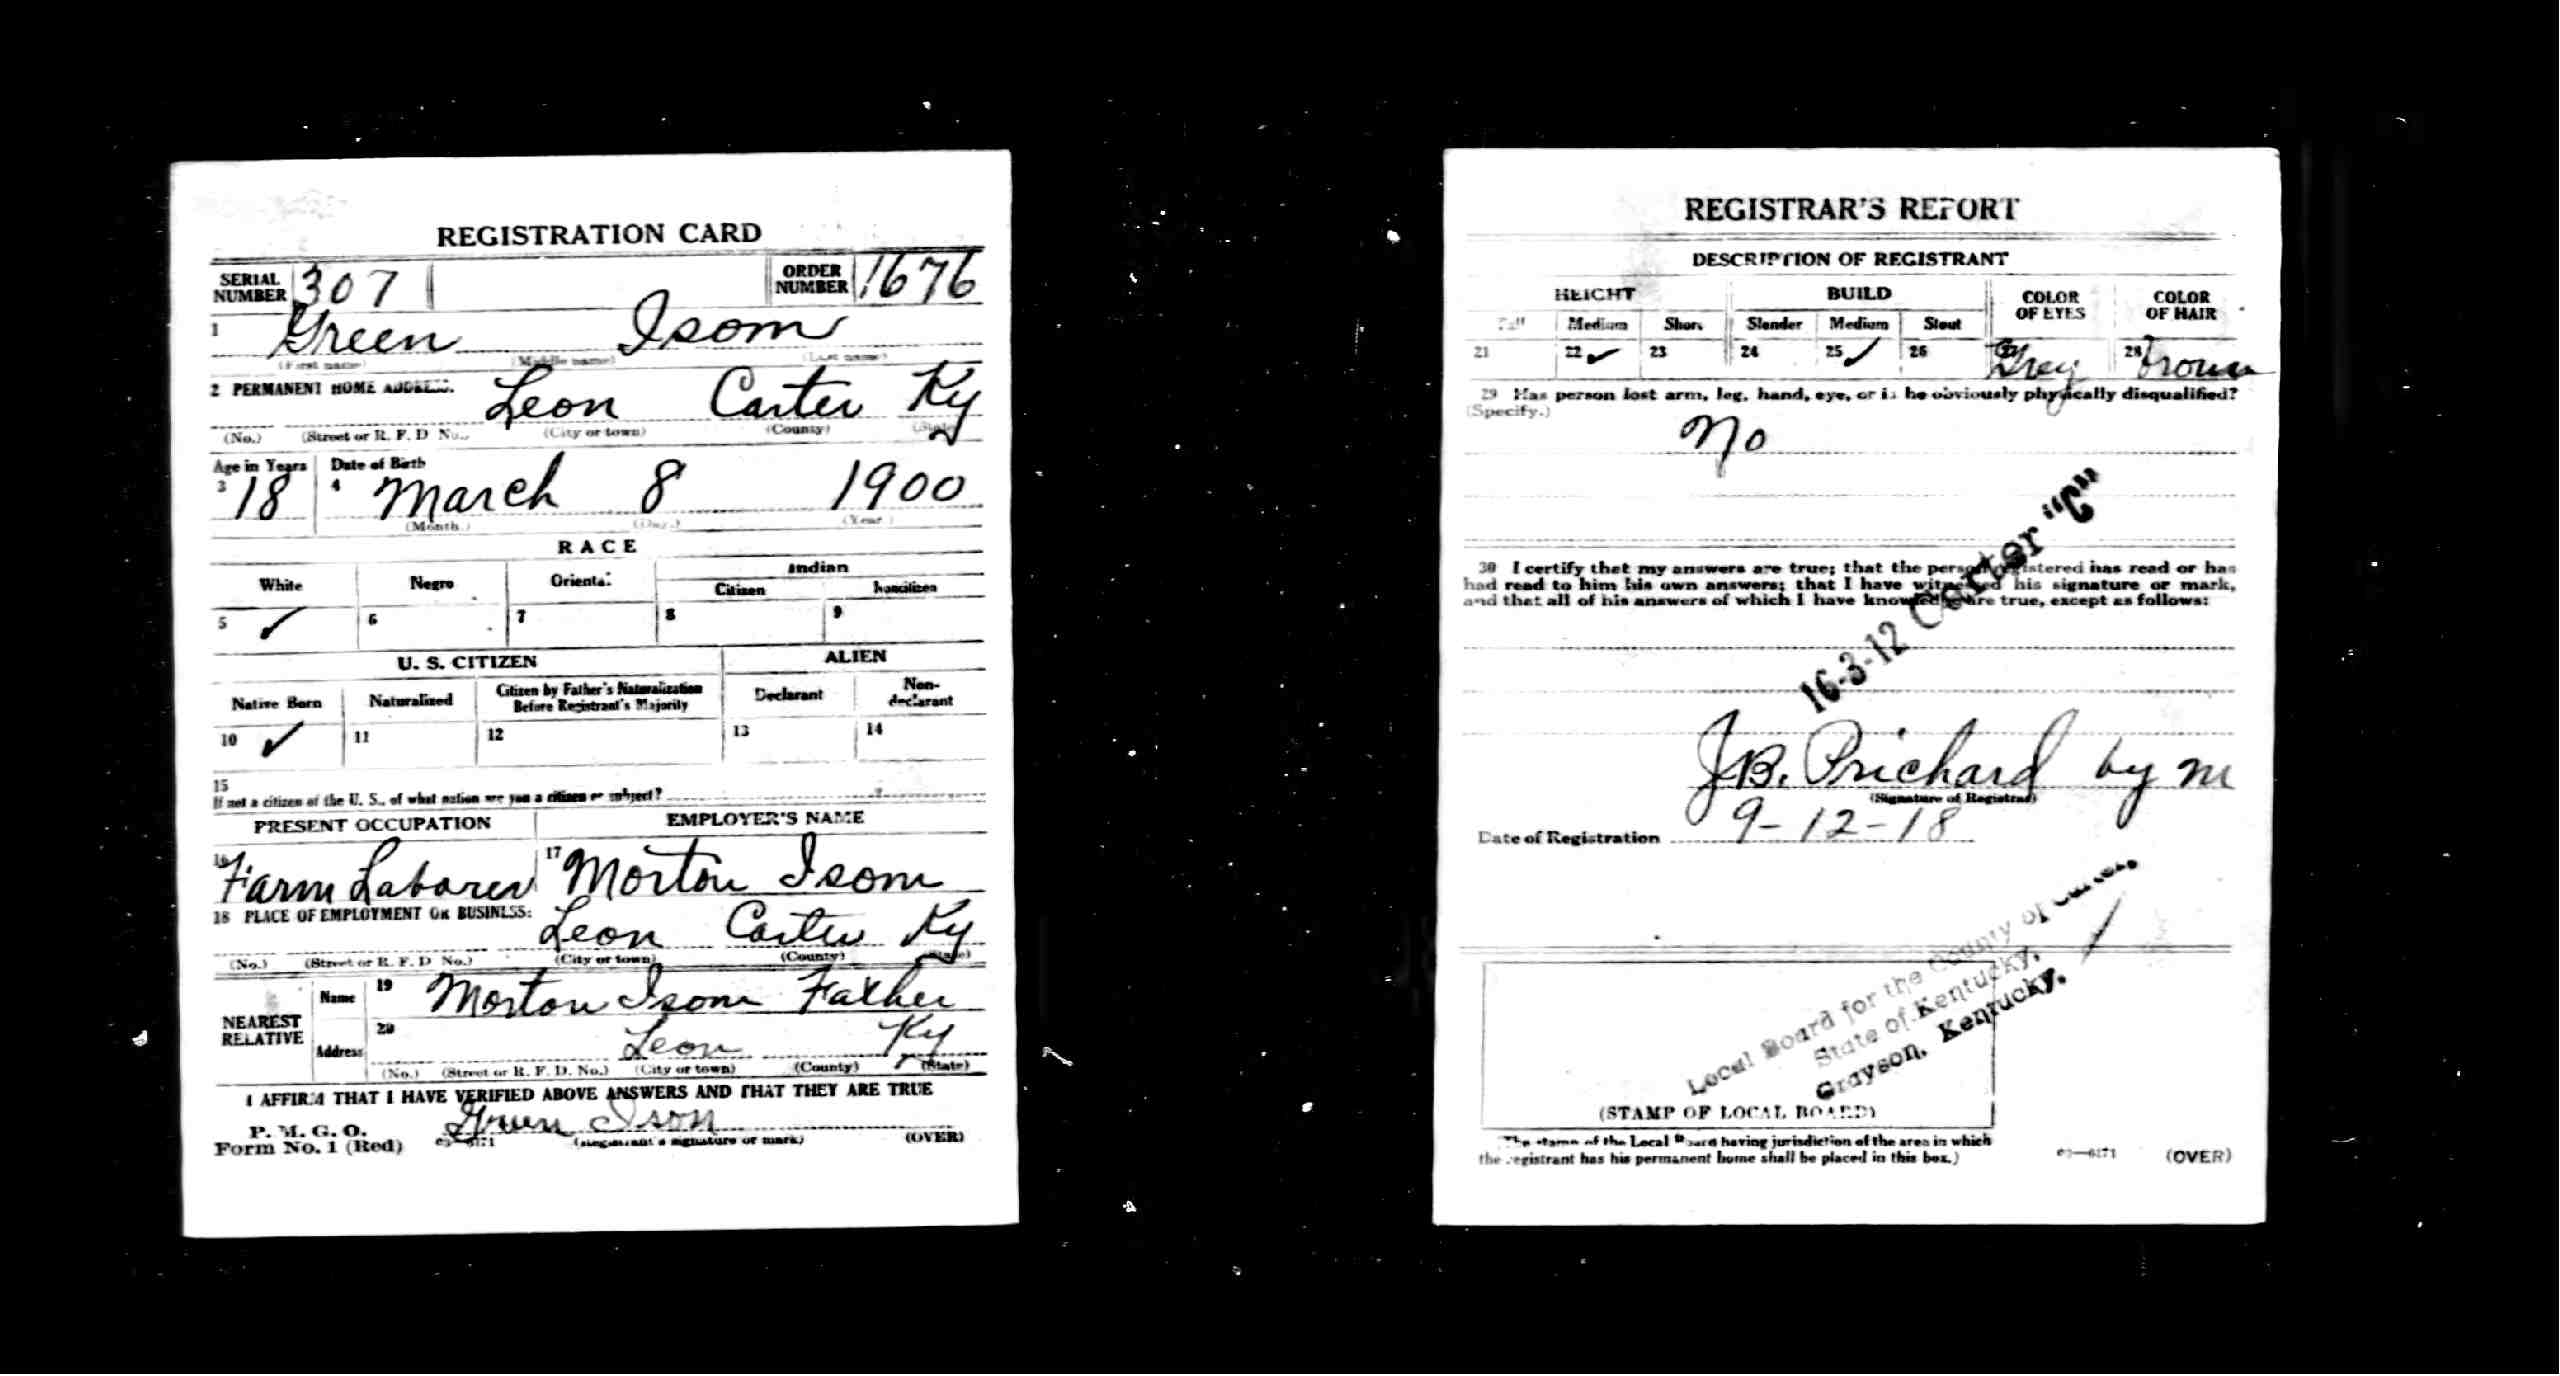 REGISTRATION CARD
SERIAL NUMBER 307 ORDER NUMBER 1676
1 Green Isom
(First name) (Middle name) (Last name)
2 PERMANENT HOME ADDRESS. Leon Carter Ky
(No.) (Street or R. F. D No.) (City or town) (County) (State)
Age in Years Date of Birth
3 18 4 March 8 1900
(Month.) (Day.) (Year.)
RACE
White Negro Oriental Indian
Citizen Noncitizen
5 ✓ 6 7 8 9
U. S. CITIZEN ALIEN
Native Born Naturalized Citizen by Father's Naturalization Before Registrant's Majority Declarant Non-declarant
10 ✓ 11 12 13 14
15
If not a citizen of the U. S., of what nation are you a citizen or subject?
PRESENT OCCUPATION EMPLOYER'S NAME
16 Farm Laborer 17 Morton Isom
18 PLACE OF EMPLOYMENT OR BUSINESS:
Leon Carter Ky
(No.) (Street or R. F. D No.) (City or town) (County) (State)
NEAREST RELATIVE Name 19 Morton Isom Father
Address 20 Leon Ky
(No.) (Street or R. F. D. No.) (City or town) (County) (State)
I AFFIRM THAT I HAVE VERIFIED ABOVE ANSWERS AND THAT THEY ARE TRUE
P. M. G. O.
Form No. 1 (Red) 03—6171 Green Ison
(Registrant's signature or mark) (OVER)
REGISTRAR'S REPORT
DESCRIPTION OF REGISTRANT
HEIGHT BUILD COLOR OF EYES COLOR OF HAIR
Tall Medium Short Slender Medium Stout
21 22 ✓ 23 24 25 ✓ 26 27 Grey 28 Brown
29 Has person lost arm, leg, hand, eye, or is he obviously physically disqualified?
(Specify.)
No
30 I certify that my answers are true; that the person registered has read or has
had read to him his own answers; that I have witnessed his signature or mark,
and that all of his answers of which I have knowledge are true, except as follows:
16-3-12 Carter "C"
J.B. Prichard by M
(Signature of Registrar)
Date of Registration 9-12-18
Local Board for the County of Carter,
State of Kentucky,
Grayson, Kentucky.
(STAMP OF LOCAL BOARD)
(The stamp of the Local Board having jurisdiction of the area in which
the registrant has his permanent home shall be placed in this box.)
03—6171 (OVER)